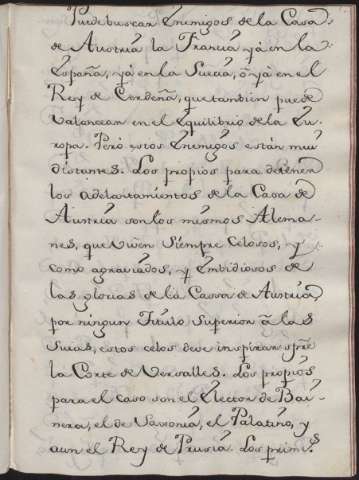 Puede buscar Enemigos de la Casa
de Austria la Francia yà en la
España, yà en la Suecia, ò yà en el
Rey de Cerdeña, que tambien puede
valancear en el Equilibrio de la Eu-
ropa. Pero estos Enemigos están mui
distantes. Los propios para detener
los adelantamientos de la Casa de
Austria son los mismos Alema-
nes, que viven siempre Celosos, y
como agraviados, y Embidiosos de
las glorias de la Cassa de Austria,
por ningun Titulo Superior à las
Suias, estos celos deve inspirar spre
la Corte de Versalles. Los propios
para el Caso son el Elector de Bai-
viera, el de Saxonia, el Palatino, y
aun el Rey de Prusia. Los prim.s